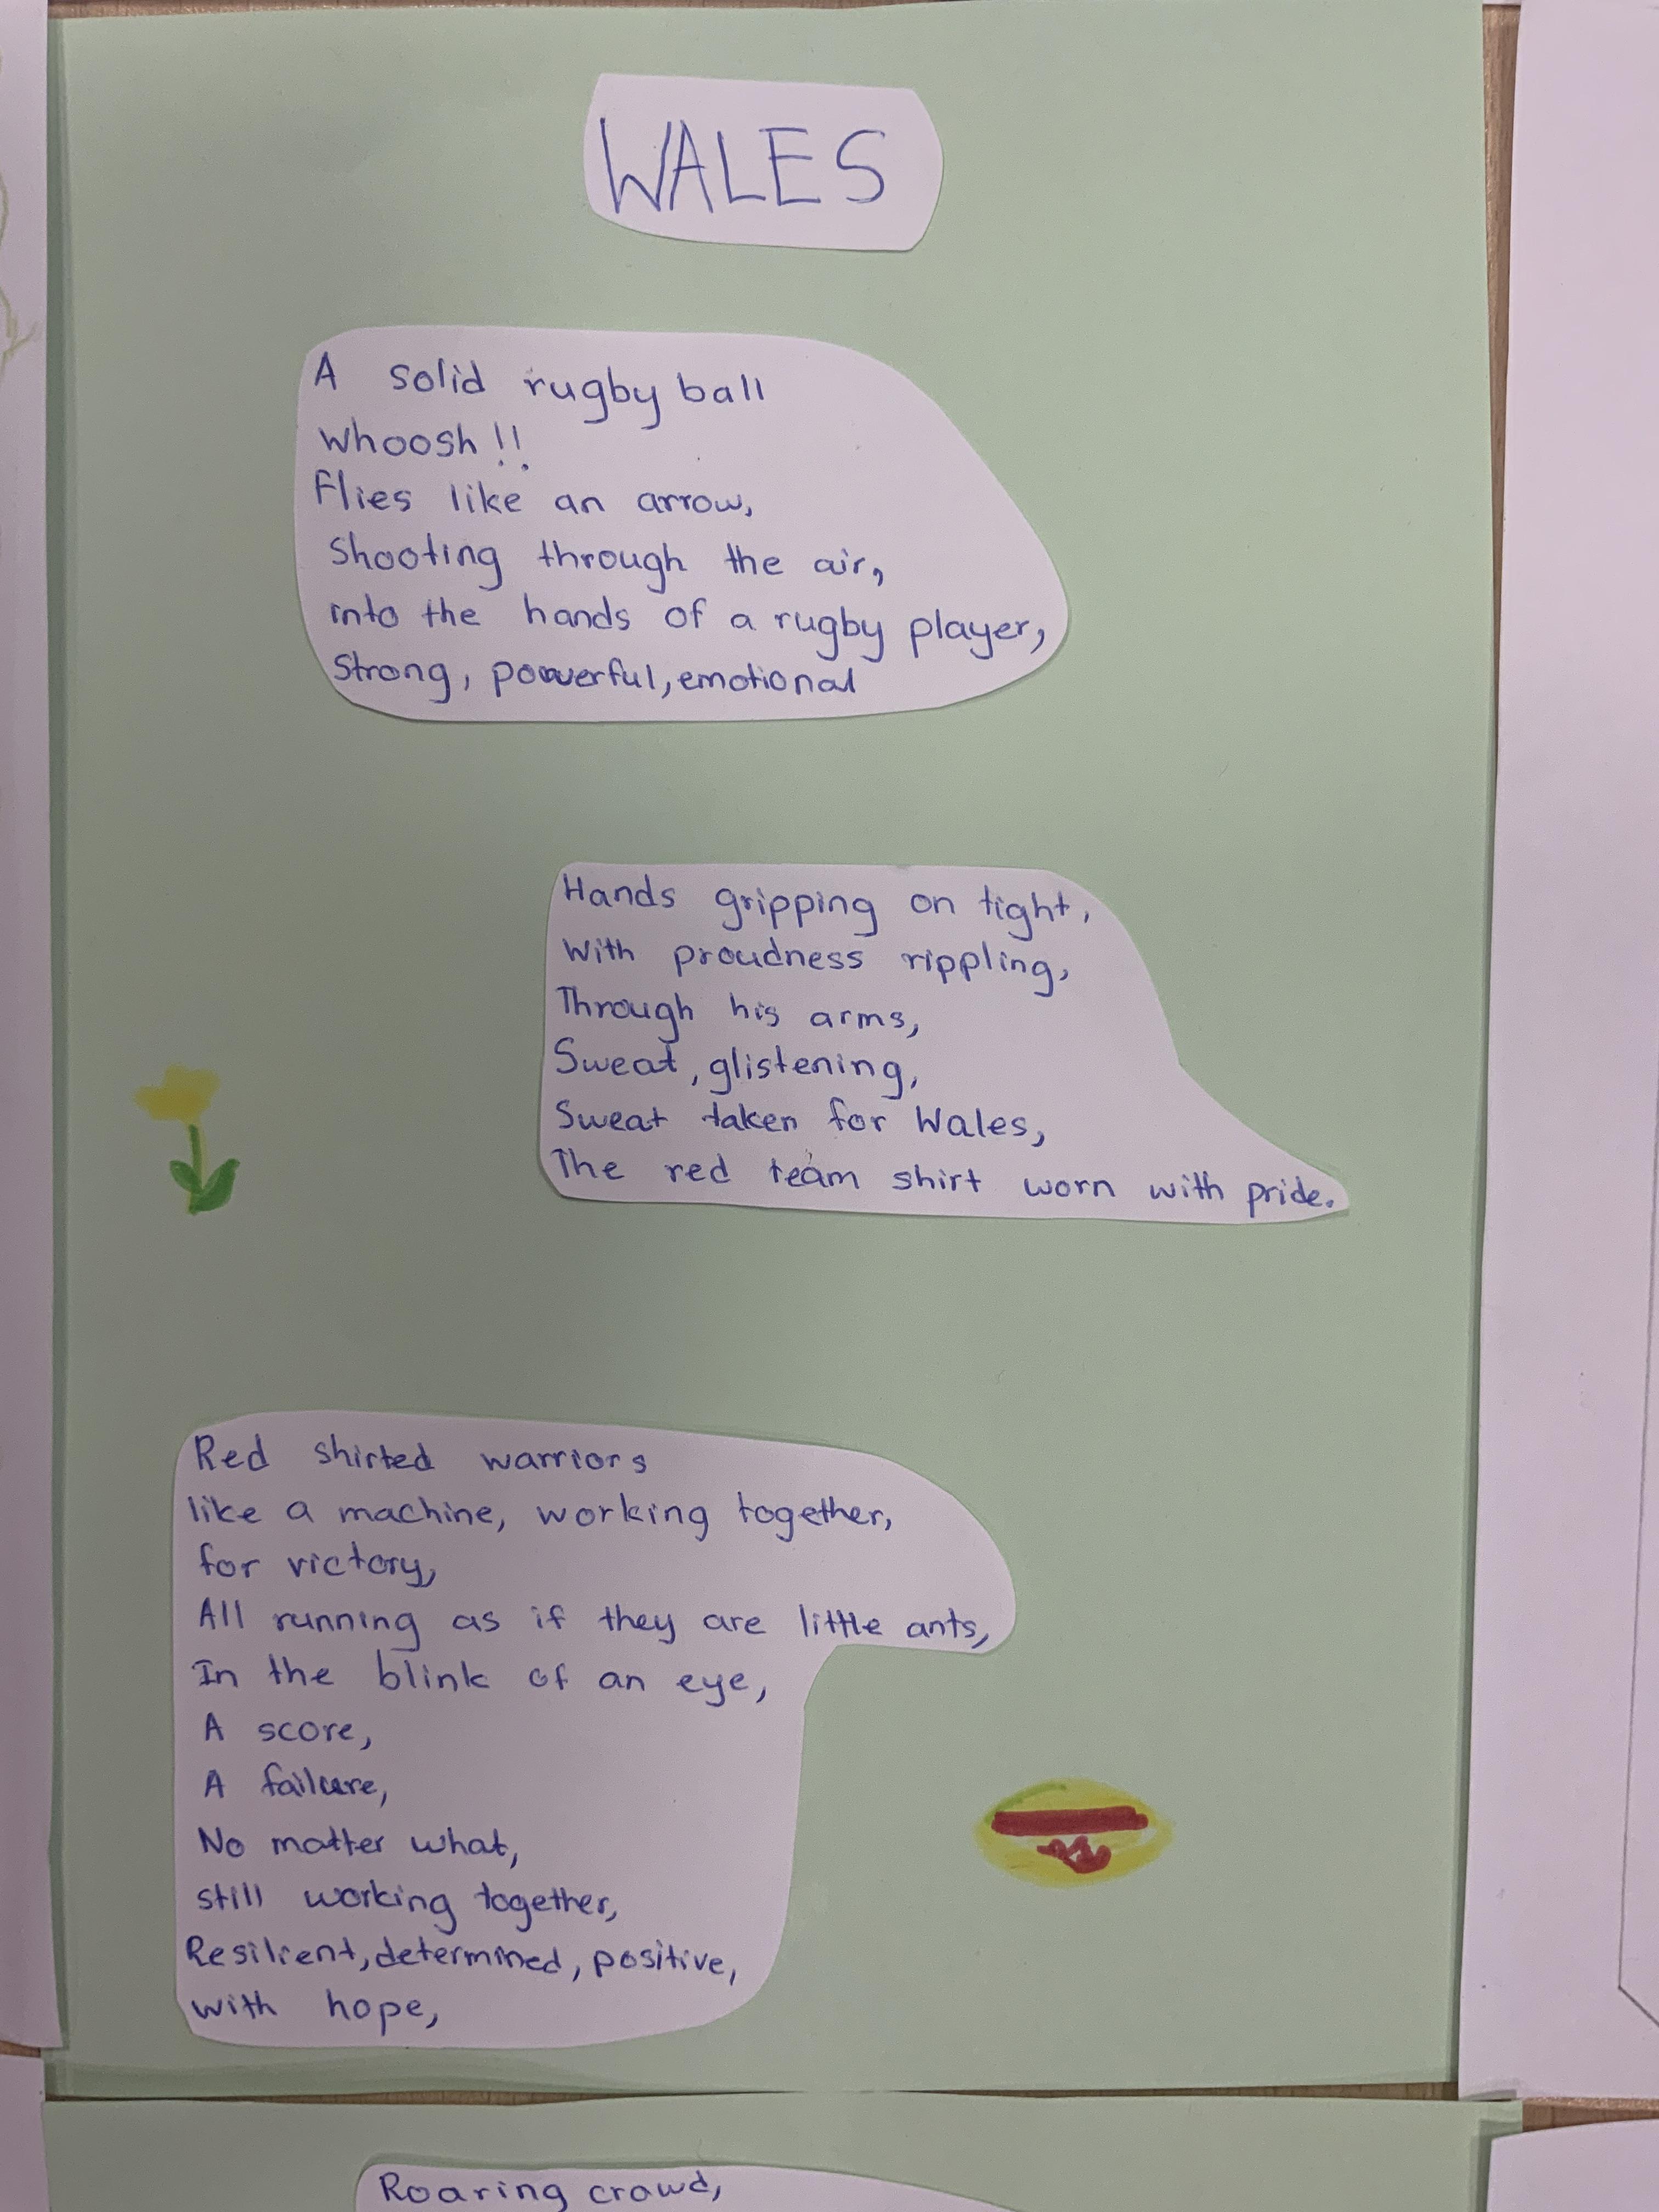 WALES
A solid rugby ball
whoosh!!
Flies like an arrow,
Shooting through the air,
into the hands of a rugby player,
Strong, powerful, emotional
Hands gripping on tight,
With proudness rippling,
Through his arms,
Sweat, glistening,
Sweat taken for Wales,
The red team shirt worn with pride.
Red shirted warriors
like a machine, working together,
for victory,
All running as if they are little ants,
In the blink of an eye,
A score,
A failure,
No matter what,
still working together,
Resilient, determined, positive,
with hope,
Roaring crowd,